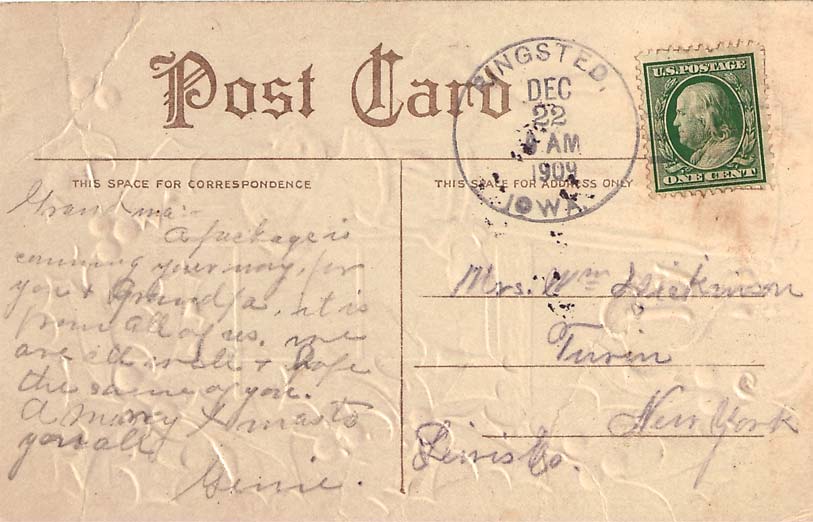 Post Card
RINGSTED,
DEC
22
AM
1909
IOWA.
U.S. POSTAGE
ONE CENT
THIS SPACE FOR CORRESPONDENCE
THIS SPACE FOR ADDRESS ONLY
Grandma:-
A package is
comming your way, for
you & Grandpa, it is
from all of us. we
are all well & hope
the same of you.
A merry Xmas to
you all
Genie.
Mrs. Wm Dickinson
Turin
New York
Lewis Co.